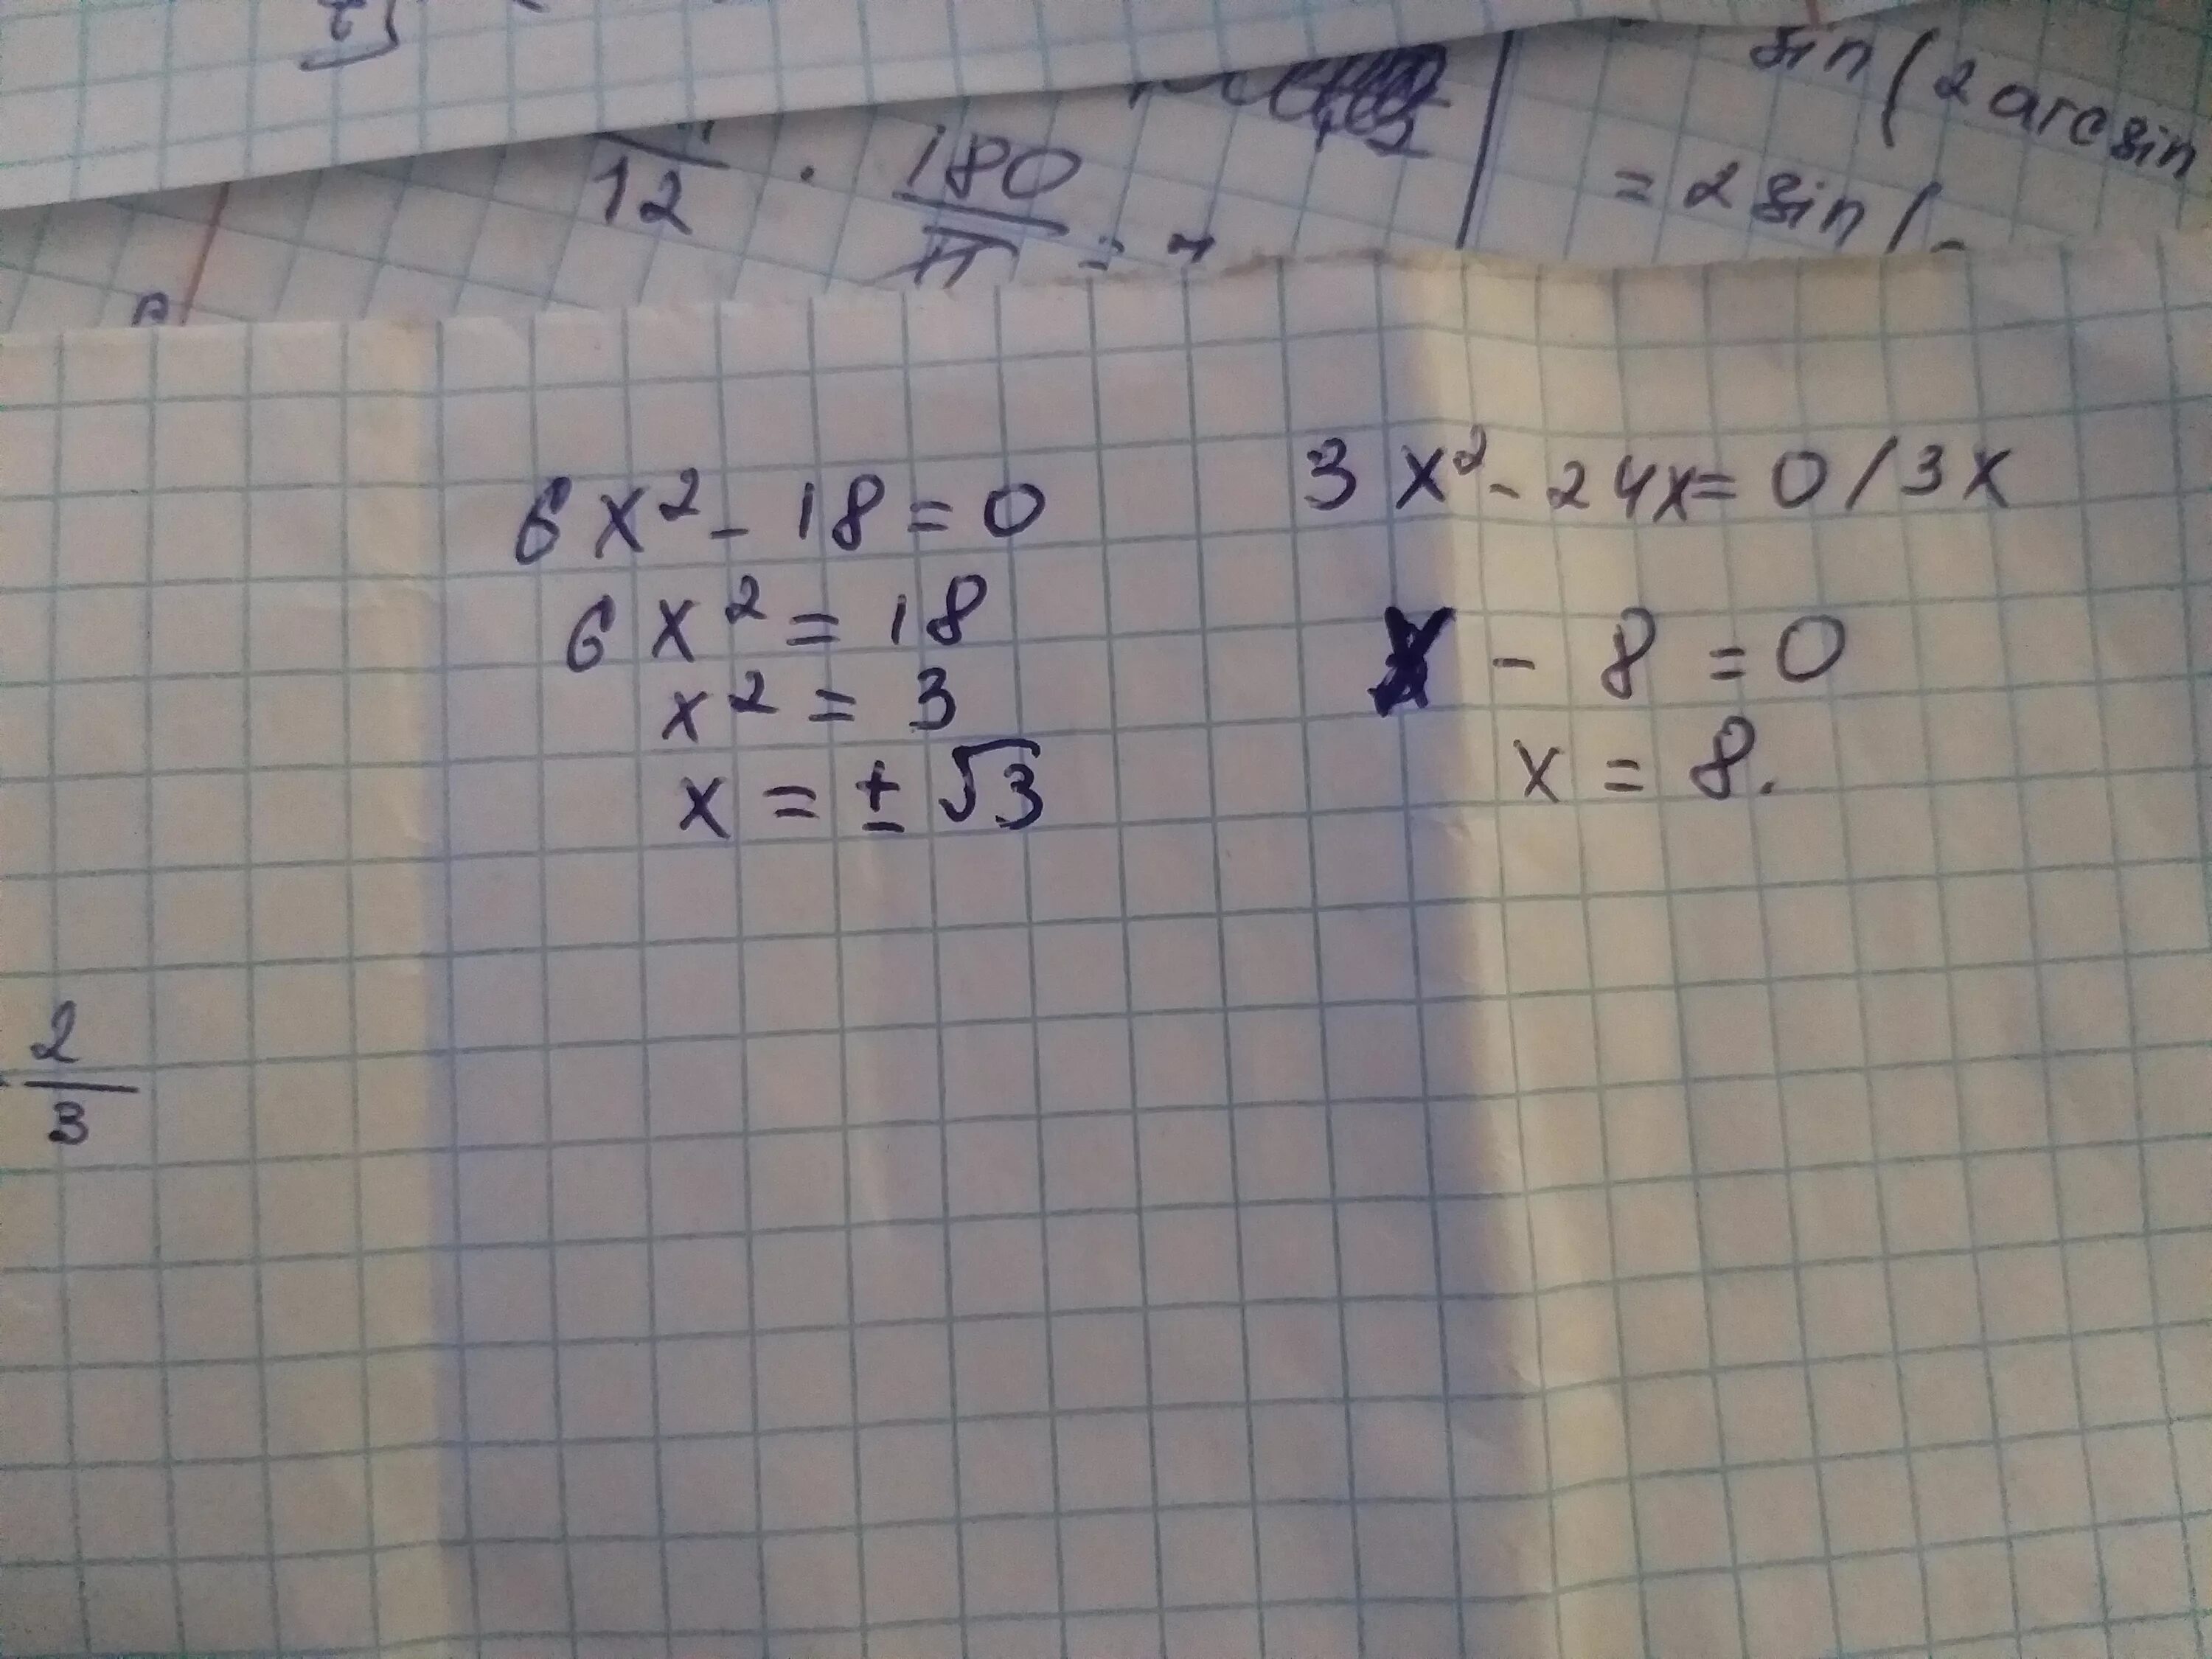 12 · 180
π
sin ( 2 arcsin
= 2 sin ( -
6 x² - 18 = 0
6 x² = 18
x² = 3
x = ± √3
3 x² - 24x = 0 / 3x
x - 8 = 0
x = 8.
2
3